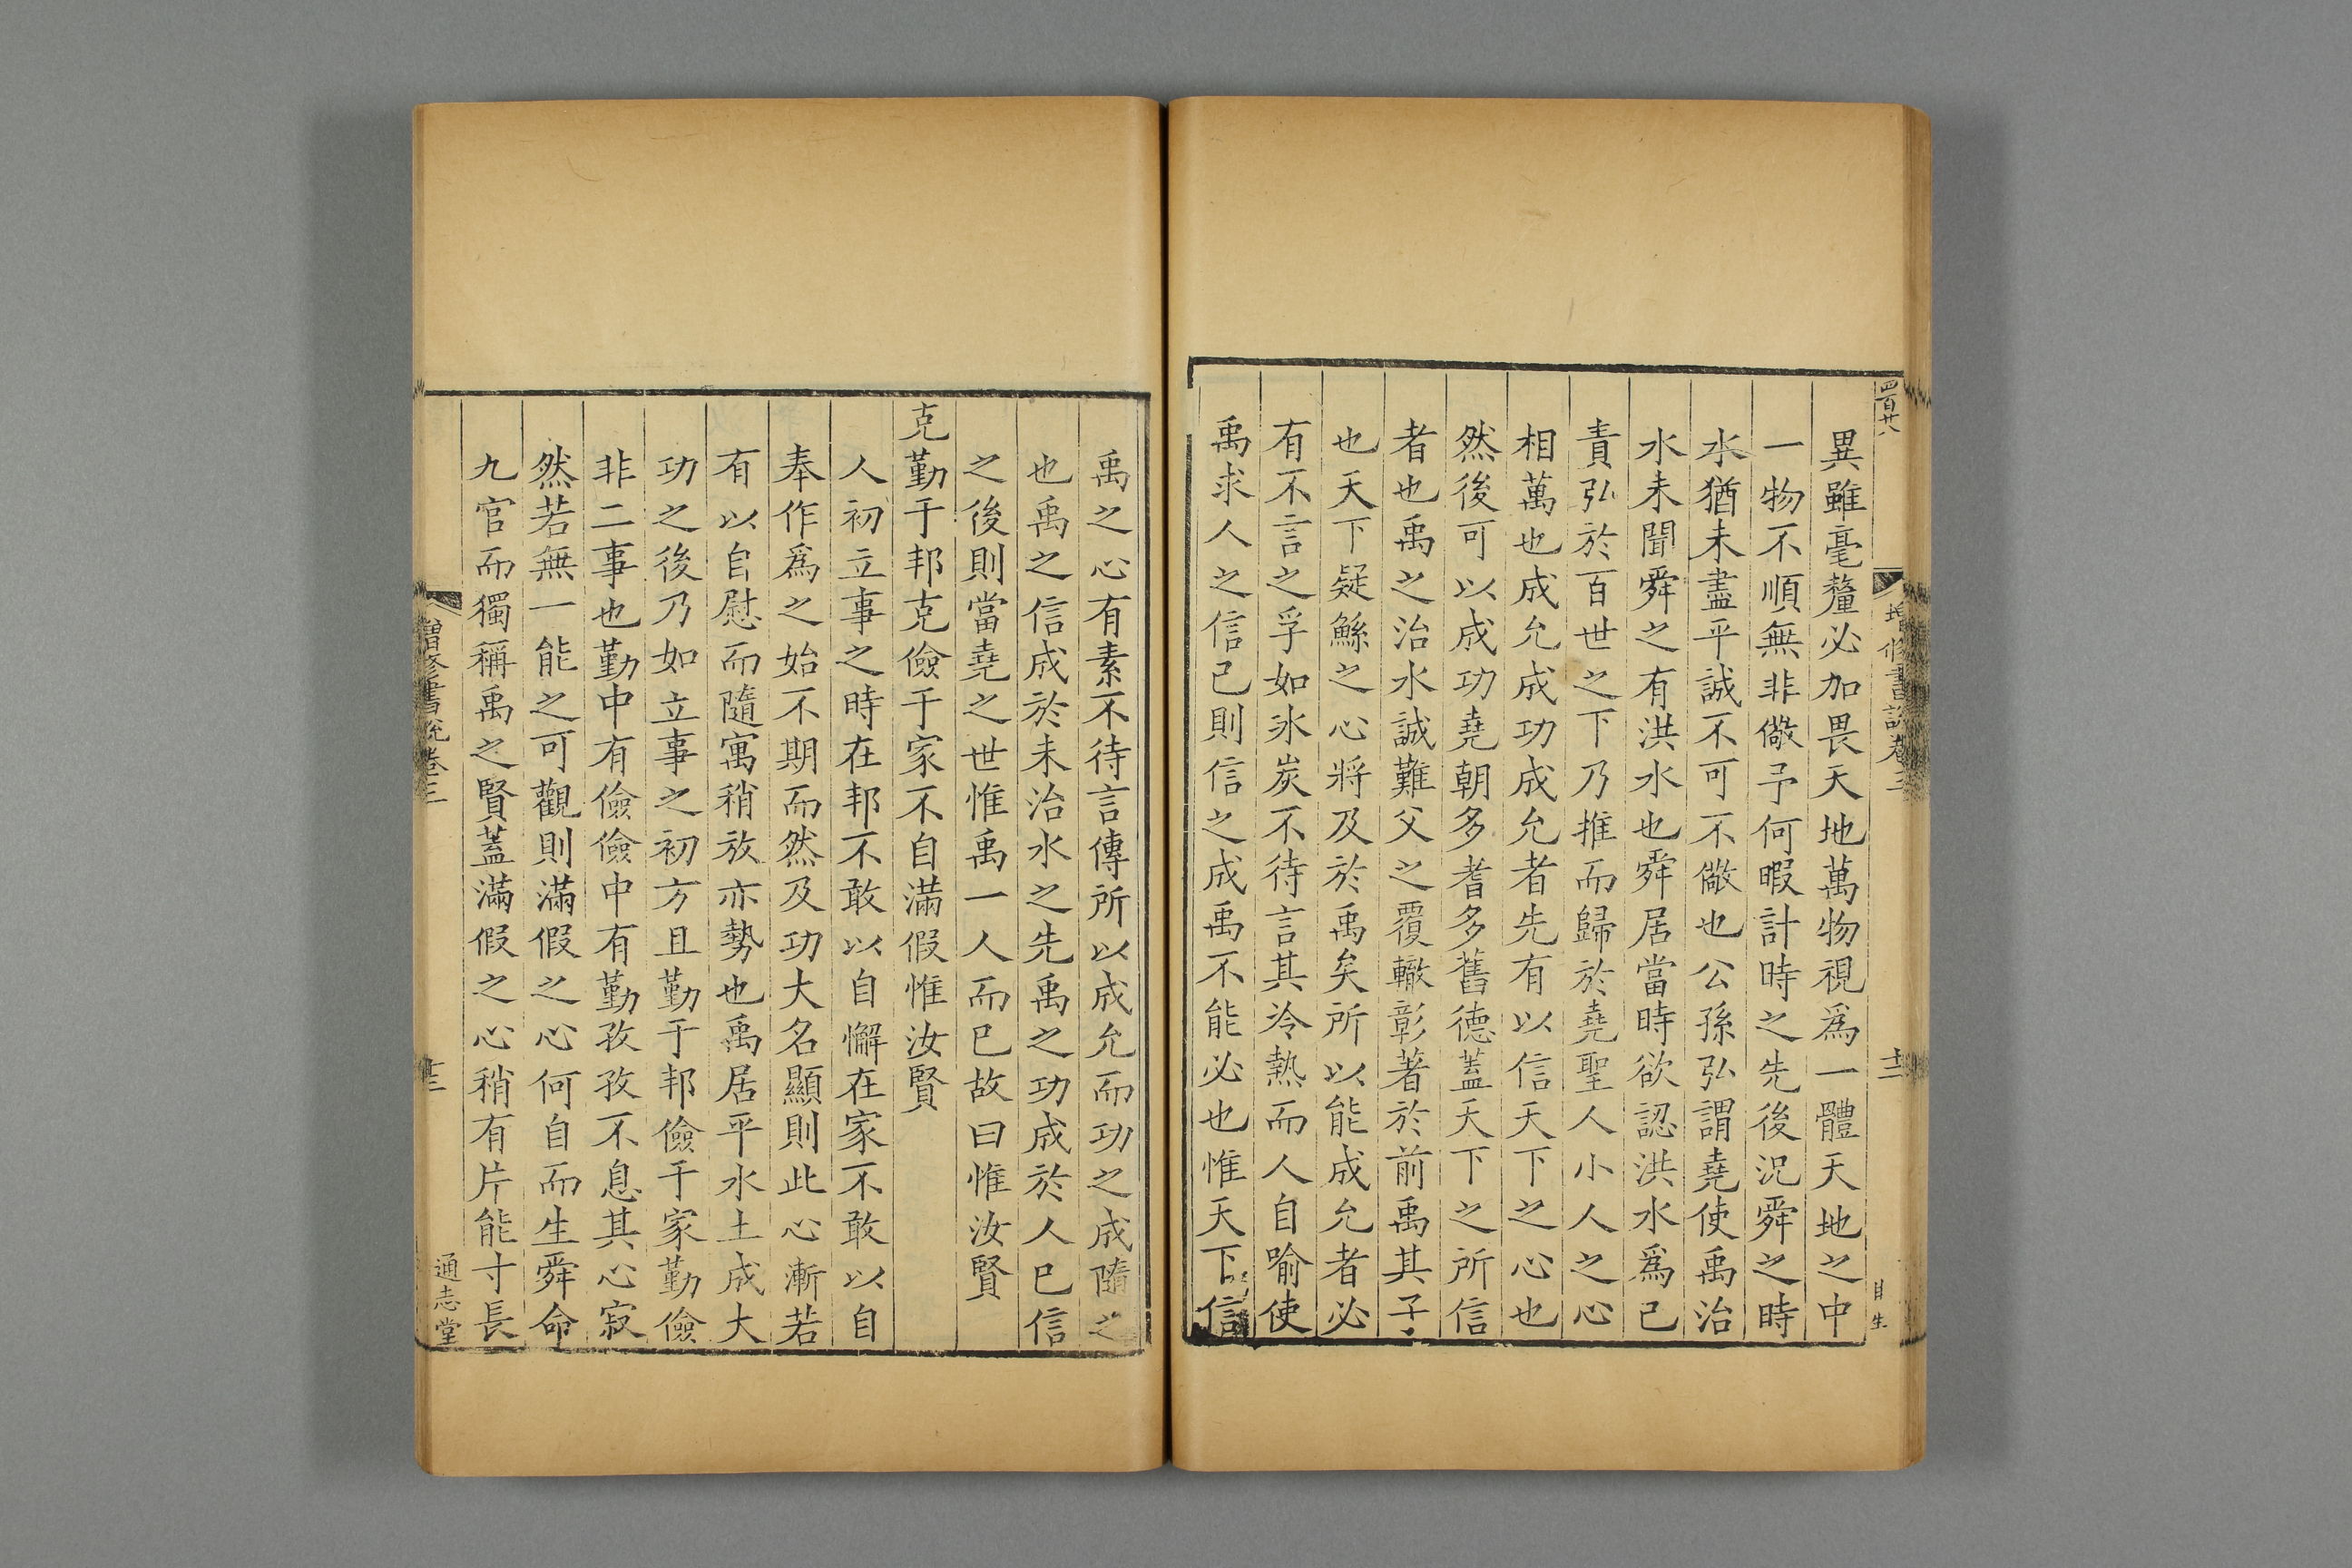 四百廿八
增修書說卷三
十二
異雖毫釐必加畏天地萬物視爲一體天地之中
一物不順無非儆予何暇計時之先後況舜之時
水猶未盡平誠不可不儆也公孫弘謂堯使禹治
水未聞舜之有洪水也舜居當時欲認洪水爲已
責弘於百世之下乃推而歸於堯聖人小人之心
相萬也成允成功成允者先有以信天下之心也
然後可以成功堯朝多耆多舊德蓋天下之所信
者也禹之治水誠難父之覆轍彰著於前禹其子
也天下疑鯀之心將及於禹矣所以能成允者必
有不言之孚如氷炭不待言其冷熱而人自喻使
禹求人之信己則信之成禹不能必也惟天下信
禹之心有素不待言傳所以成允而功之成隨之
也禹之信成於未治水之先禹之功成於人已信
之後則當堯之世惟禹一人而已故曰惟汝賢
克勤于邦克儉于家不自滿假惟汝賢
人初立事之時在邦不敢以自懈在家不敢以自
奉作爲之始不期而然及功大名顯則此心漸若
有以自慰而隨寓稍放亦勢也禹居平水土成大
功之後乃如立事之初方且勤于邦儉于家勤儉
非二事也勤中有儉儉中有勤孜孜不息其心寂
然若無一能之可觀則滿假之心何自而生舜命
九官而獨稱禹之賢蓋滿假之心稍有片能寸長
增修書說卷三
十三
通志堂